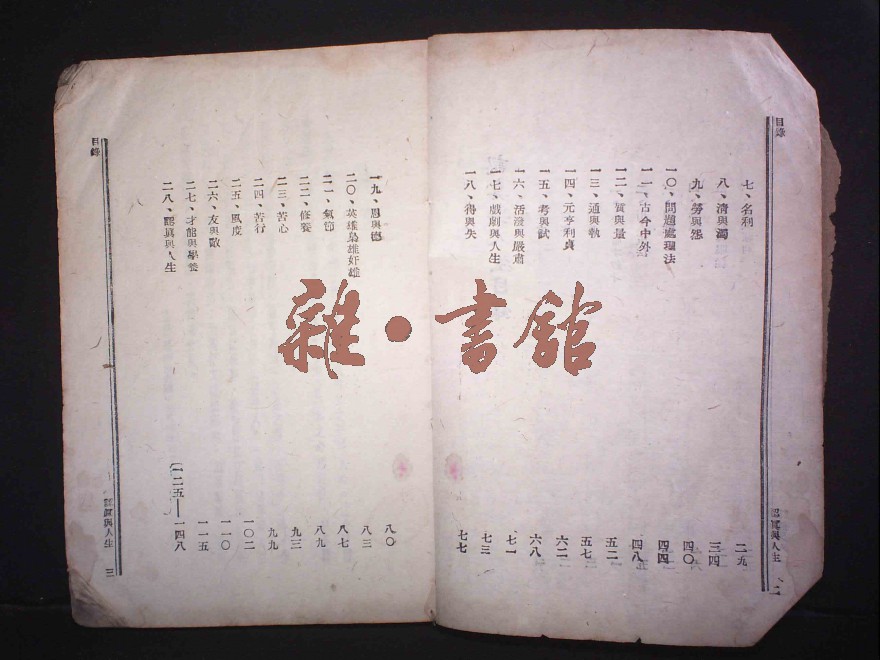 目錄
七、名利 二九
八、清與濁 三四
九、勞與怨 四〇
一〇、問題處理法 四四
一一、古今中外 四八
一二、質與量 五二
一三、通與執 五七
一四、元亨利貞 六二
一五、考與試 六八
一六、活潑與嚴肅 七一
一七、戲劇與人生 七三
一八、得與失 七七
認眞與人生 二
一九、恩與德 八〇
二〇、英雄梟雄奸雄 八三
二一、氣節 八七
二二、修養 八九
二三、苦心 九三
二四、苦行 九九
二五、風度 一〇二
二六、友與敵 一一〇
二七、才能與學養 一一五
二八、認眞與人生 (一二五——一四八
目錄
認眞與人生 三
雜·書館